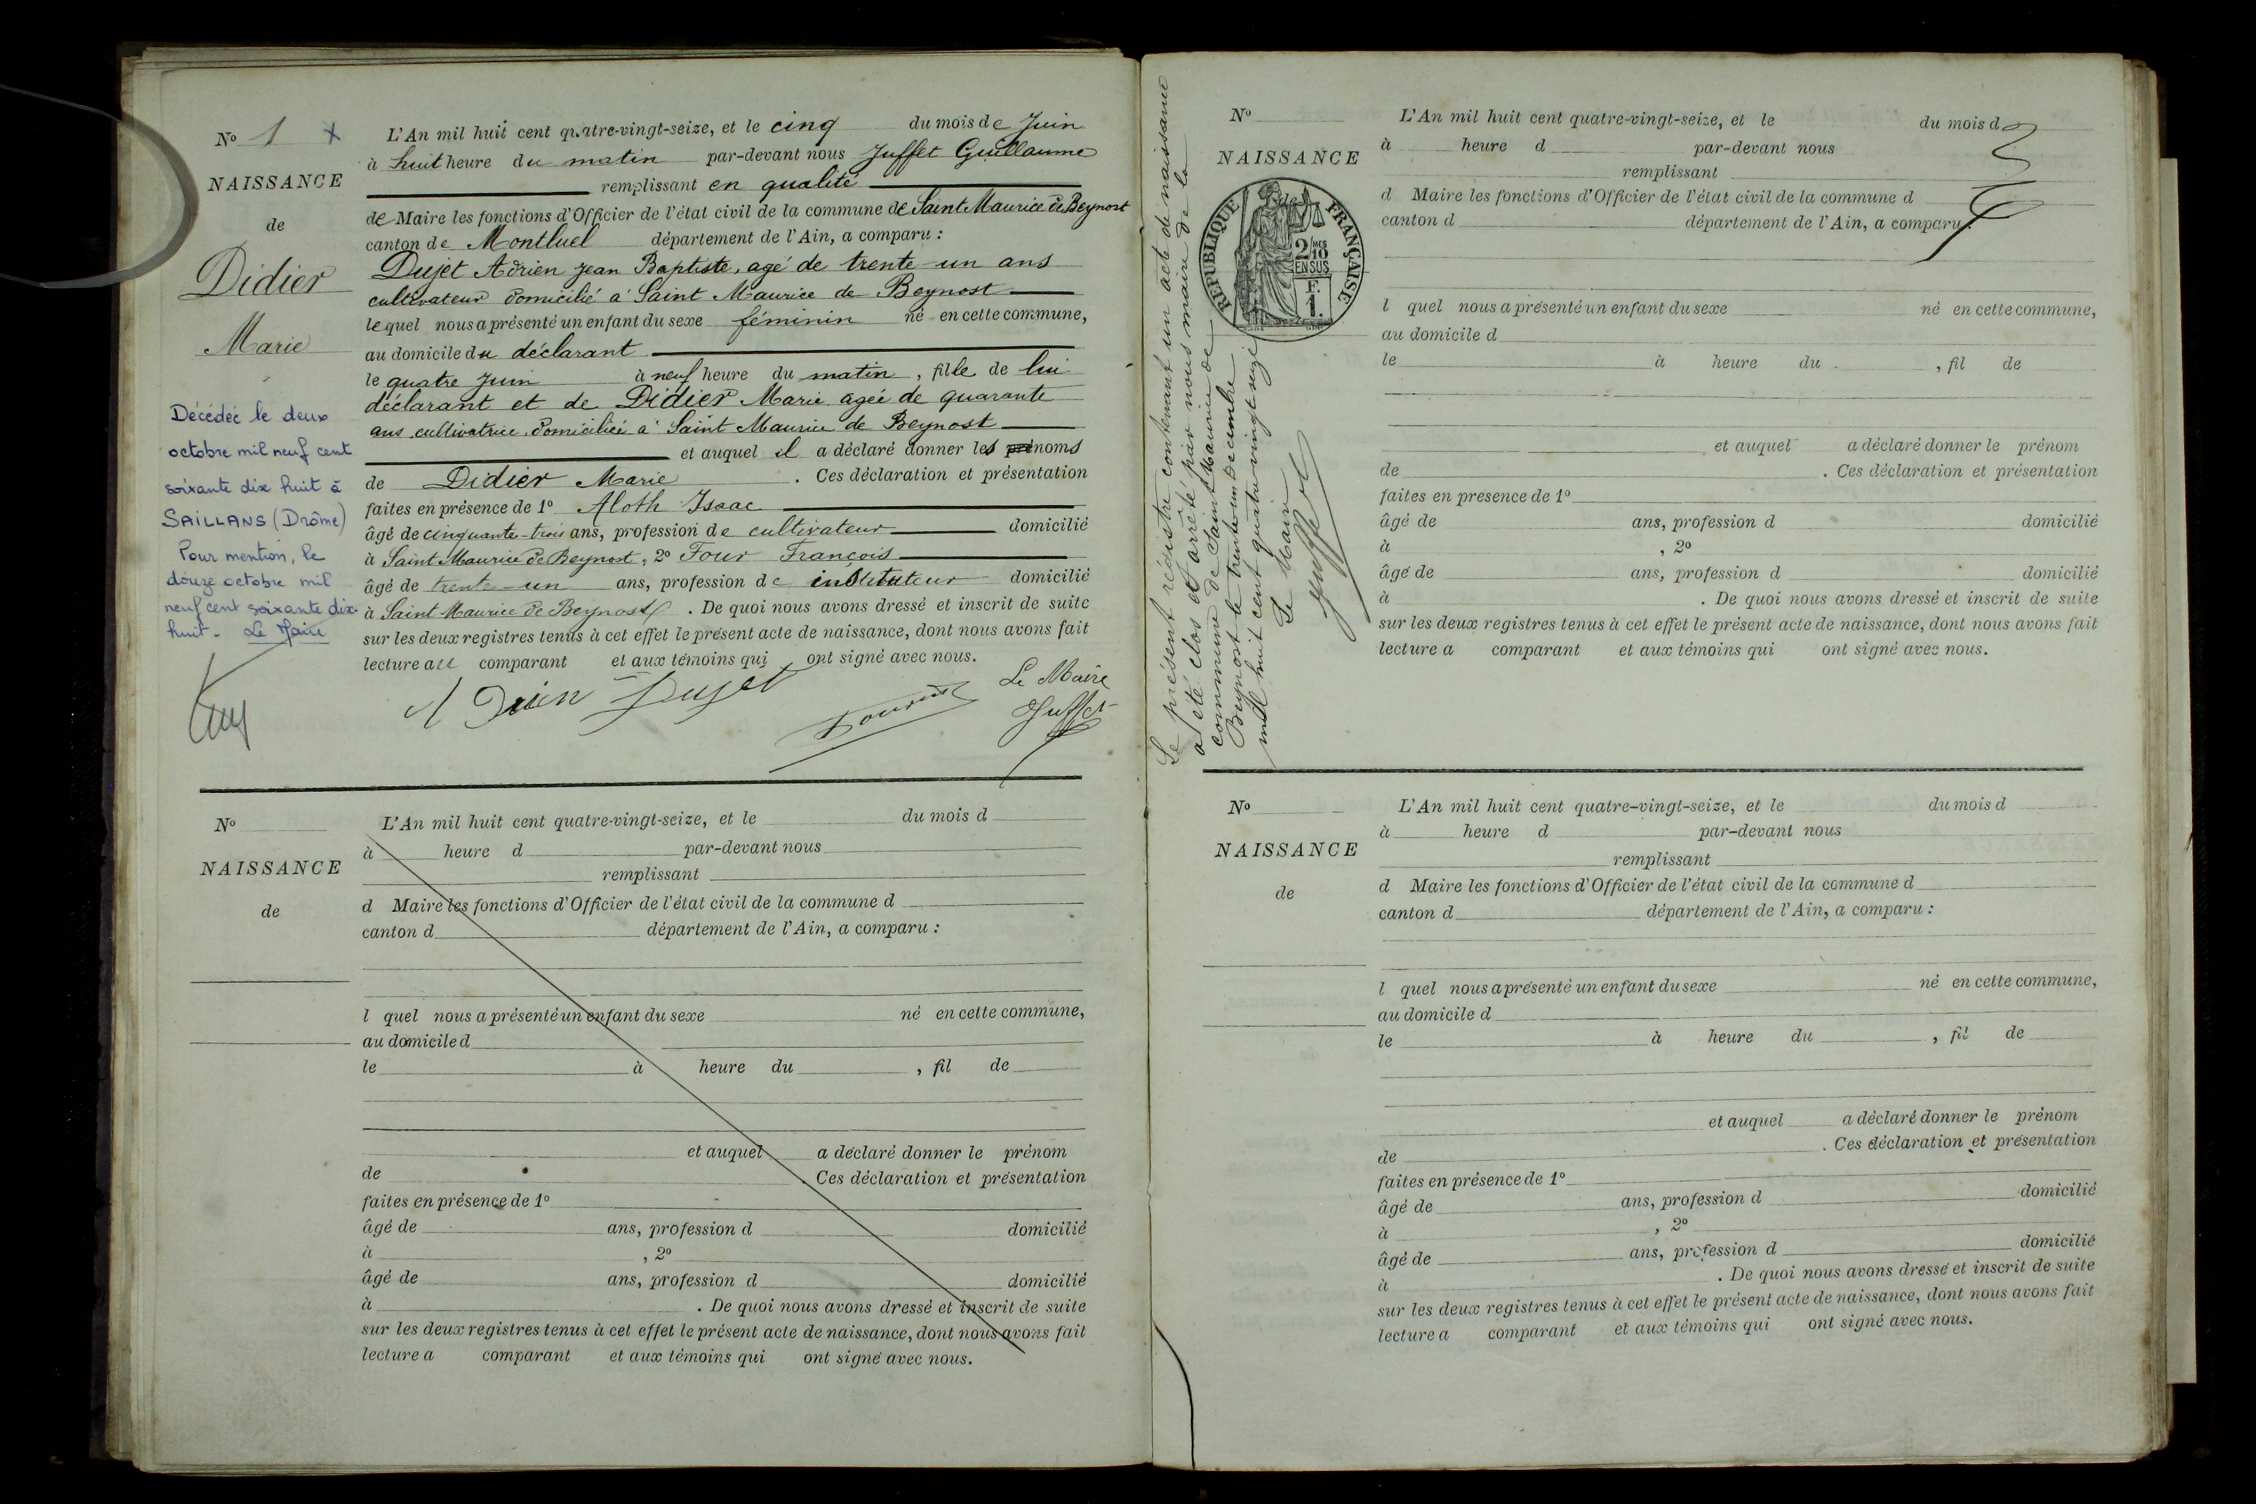 Nº 1 x
NAISSANCE
de
Didier
Marie
Décédée le deux
octobre mil neuf cent
soixante dix huit à
SAILLANS (Drôme)
Pour mention, le
douze octobre mil
neuf cent soixante dix-
huit. Le Maire
L'An mil huit cent quatre-vingt-seize, et le cinq du mois de Juin
à huit heure du matin par-devant nous Juffet Guillaume
remplissant en qualité
de Maire les fonctions d'Officier de l'état civil de la commune de Saint Maurice de Beynost
canton de Montluel département de l'Ain, a comparu :
Dujet Adrien Jean Baptiste, agé de trente-un ans
cultivateur domicilié à Saint Maurice de Beynost
lequel nous a présenté un enfant du sexe féminin né en cette commune,
au domicile du déclarant
le quatre Juin à neuf heure du matin, fille de lui
déclarant et de Didier Marie agée de quarante
ans, cultivatrice, domiciliée à Saint Maurice de Beynost
et auquel il a déclaré donner les prénoms
de Didier Marie. Ces déclaration et présentation
faites en présence de 1º Aloth Isaac
âgé de cinquante-trois ans, profession de cultivateur domicilié
à Saint Maurice de Beynost, 2º Four François
âgé de trente-un ans, profession de instituteur domicilié
à Saint Maurice de Beynost. De quoi nous avons dressé et inscrit de suite
sur les deux registres tenus à cet effet le présent acte de naissance, dont nous avons fait
lecture au comparant et aux témoins qui ont signé avec nous.
Adrien Dujet
Le Maire
Juffet
Nº
NAISSANCE
de
L'An mil huit cent quatre-vingt-seize, et le du mois d
à heure d par-devant nous
remplissant
d Maire les fonctions d'Officier de l'état civil de la commune d
canton d département de l'Ain, a comparu :
l quel nous a présenté un enfant du sexe né en cette commune,
au domicile d
le à heure du , fil de
et auquel a déclaré donner le prénom
de . Ces déclaration et présentation
faites en présence de 1º
âgé de ans, profession d domicilié
à , 2º
âgé de ans, profession d domicilié
à . De quoi nous avons dressé et inscrit de suite
sur les deux registres tenus à cet effet le présent acte de naissance, dont nous avons fait
lecture a comparant et aux témoins qui ont signé avec nous.
Le présent registre contenant un acte de naissance
a été clos et arrêté par nous maire de la
commune de Saint Maurice de
Beynost le trente-un Décembre
mil huit cent quatre vingt seize
Le Maire
Juffet
Nº
NAISSANCE
de
RÉPUBLIQUE FRANÇAISE
2/10 MES
EN SUS
F.
1.
L'An mil huit cent quatre-vingt-seize, et le du mois d
à heure d par-devant nous
remplissant
d Maire les fonctions d'Officier de l'état civil de la commune d
canton d département de l'Ain, a comparu :
l quel nous a présenté un enfant du sexe né en cette commune,
au domicile d
le à heure du , fil de
et auquel a déclaré donner le prénom
de . Ces déclaration et présentation
faites en présence de 1º
âgé de ans, profession d domicilié
à , 2º
âgé de ans, profession d domicilié
à . De quoi nous avons dressé et inscrit de suite
sur les deux registres tenus à cet effet le présent acte de naissance, dont nous avons fait
lecture a comparant et aux témoins qui ont signé avec nous.
Nº
NAISSANCE
de
L'An mil huit cent quatre-vingt-seize, et le du mois d
à heure d par-devant nous
remplissant
d Maire les fonctions d'Officier de l'état civil de la commune d
canton d département de l'Ain, a comparu :
l quel nous a présenté un enfant du sexe né en cette commune,
au domicile d
le à heure du , fil de
et auquel a déclaré donner le prénom
de . Ces déclaration et présentation
faites en présence de 1º
âgé de ans, profession d domicilié
à , 2º
âgé de ans, profession d domicilié
à . De quoi nous avons dressé et inscrit de suite
sur les deux registres tenus à cet effet le présent acte de naissance, dont nous avons fait
lecture a comparant et aux témoins qui ont signé avec nous.